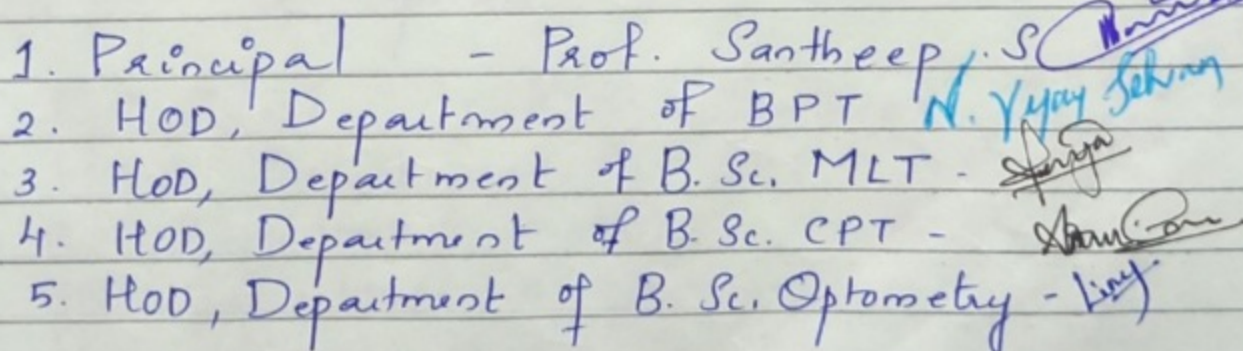 1. Principal - Prof. Santheep. S
2. HOD, Department of BPT N. Vijay Selvan
3. HOD, Department of B. Sc. MLT -
4. HOD, Department of B. Sc. CPT -
5. HOD, Department of B. Sc. Optometry - Liny